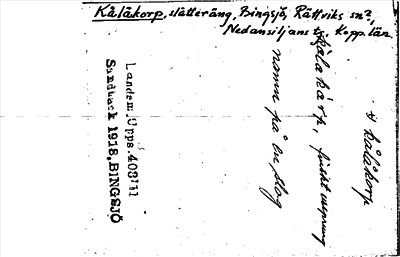 Kålåkorp, slåtteräng, Bingsjö, Rättviks sn,
Nedansiljans Kopp. län.
kålåkorp
kålakårp, finskt ursprung
namn på en slog
Landsm. Upps. 403:11
Sundback 1918, BINGSJÖ